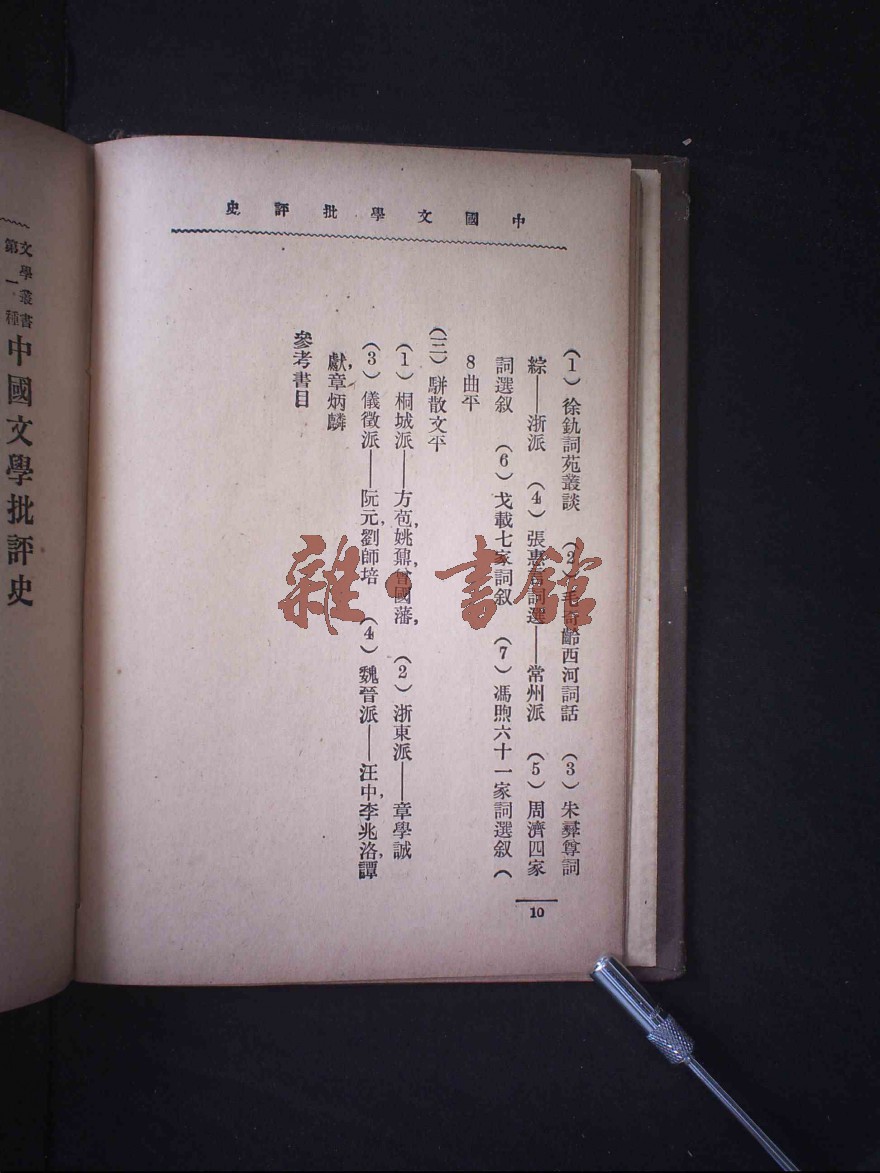 中國文學批評史
（1）徐釚詞苑叢談　（2）毛奇齡西河詞話　（3）朱彝尊詞
綜——浙派　（4）張惠言詞選——常州派　（5）周濟四家
詞選叙　（6）戈載七家詞叙　（7）馮煦六十一家詞選叙（
8曲平
（三）駢散文平
（1）桐城派——方苞，姚鼐，曾國藩，　（2）浙東派——章學誠
（3）儀徵派——阮元，劉師培　（4）魏晉派——汪中，李兆洛，譚
獻，章炳麟
參考書目
10
文學叢書
第一種
中國文學批評史
雜·書館